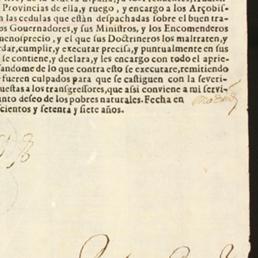 Provincias de ella, y ruego, y encargo a los Arçobis-
n las cedulas que están despachadas sobre el buen tra-
os Gouernadores, y sus Ministros, y los Encomenderos
menosprecio, y el que sus Doctrineros los maltraten, y
rdar, cumplir, y executar precisa, y puntualmente en sus
se contiene, y declara, y les encargo con todo el aprie-
sandome de lo que contra esto se executare, remitiendo
e fueren culpados para que se castiguen con la seueri-
uestas a los transgressores, que assi conviene a mi servi-
unto deseo de los pobres naturales. Fecha en
scientos y setenta y siete años.